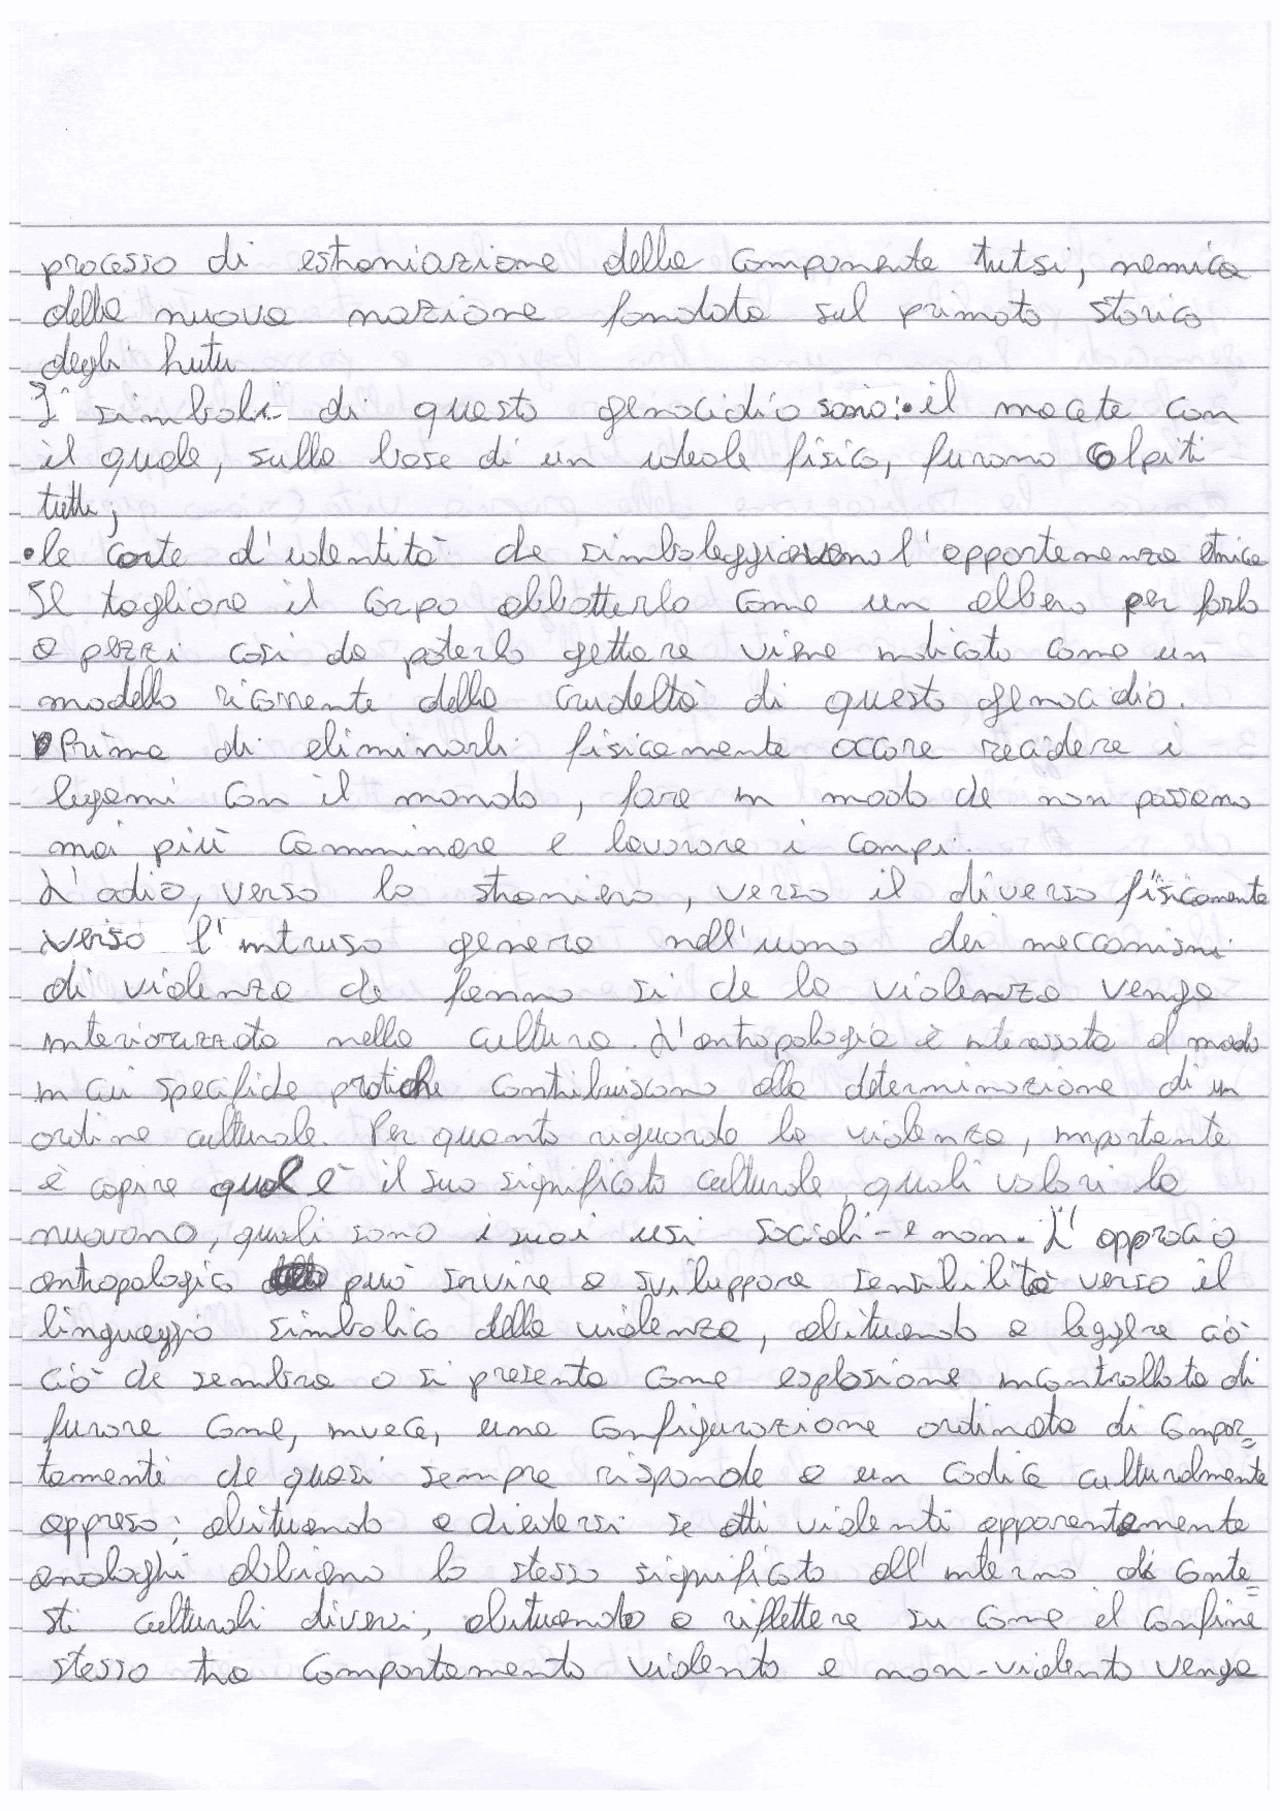 processo di estraniazione della componente tutsi, nemica
della nuova nazione fondata sul primato storico
degli hutu
I simboli di questo genocidio sono: • il macete con
il quale, sulla base di un ideale fisico, furono colpiti
tutti;
• le carte d'identità che simboleggiavano l'appartenenza etnica
Il tagliare il corpo abbatterlo come un albero per farlo
a pezzi così da poterlo gettare viene indicato come un
modello ricorrente della crudeltà di questo genocidio.
Prima di eliminarli fisicamente occore recidere i
legami con il mondo, fare in modo che non possano
mai più camminare e lavorare i campi.
L'odio, verso lo straniero, verso il diverso fisicamente
verso l'intruso genera nell'uomo dei meccanismi
di violenza che fanno si che la violenza venga
interiorizzata nella cultura. L'antropologia è interessata al modo
in cui specifiche pratiche contribuiscono alla determinazione di un
ordine culturale. Per quanto riguarda la violenza, importante
è capire qual è il suo significato culturale, quali valori la
muovono, quali sono i suoi usi sociali - e non. L'approcio
antropologico può servire a sviluppare sensibilità verso il
linguaggio simbolico della violenza, abituando a leggere ciò
ciò che sembra o si presenta come esplosione incontrollata di
furore come, invece, una configurazione ordinata di compor=
tamenti che quasi sempre risponde a un codice culturalmente
appreso; abituando a chiedersi se atti violenti apparentemente
analoghi abbiano lo stesso significato all'interno di conte=
sti culturali diversi, abituando a riflettere su come il confine
stesso tra comportamento violento e non-violento venga